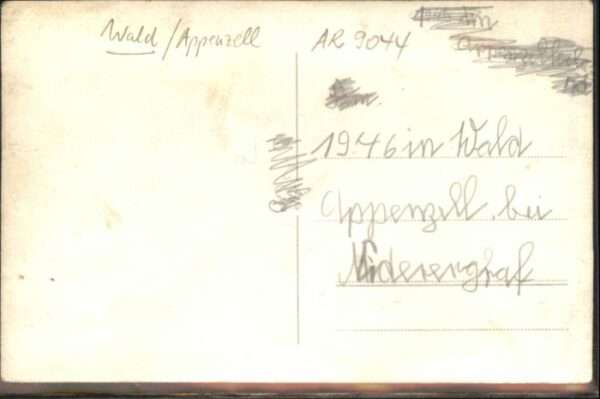 Wald / Appenzell AR 9044
1946 in Wald
Appenzell. bei
Niderengraf